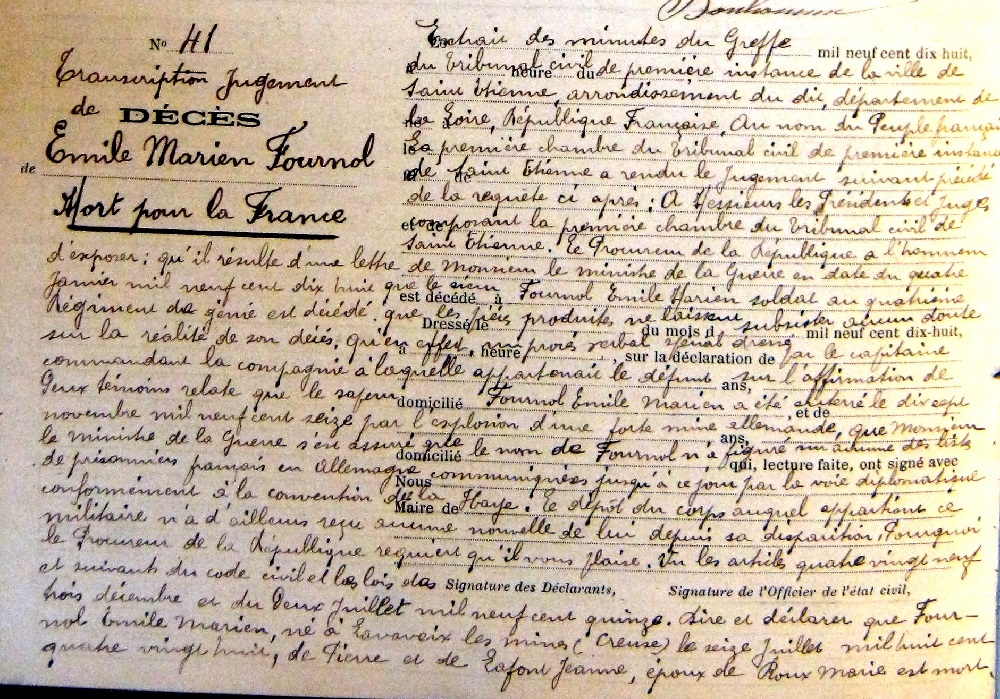 Bonhomme
Nº 41
Transcription Jugement
de DÉCÈS
de Emile Marien Fournol
Mort pour la France
Extrait des minutes du Greffe mil neuf cent dix huit,
du Tribunal civil de première instance de la ville de
heure du
Saint Etienne, arrondissement du dit, département de
la Loire, République Française, Au nom du Peuple français
La première chambre du Tribunal civil de première instance
de Saint Etienne a rendu le Jugement suivant précédé
de la requête ci après : A Messieurs les Présidents et Juges
composant la première chambre du Tribunal civil de
Saint Etienne. Le Procureur de la République a l'honneur
d'exposer ; qu'il résulte d'une lettre de Monsieur le ministre de la Guerre en date du quatre
Janvier mil neuf cent dix huit que le sieur Fournol Emile Marien soldat au quatrième
est décédé, à
Régiment de génie est décédé ; que les pièces produites ne laissent subsister aucun doute
Dressé le du mois d mil neuf cent dix-huit,
sur la réalité de son décès, qu'en effet, un procès verbal dressé par le capitaine
à heure , sur la déclaration de
commandant la compagnie à laquelle appartenait le défunt sur l'affirmation de
ans,
deux témoins relate que le sapeur Fournol Emile Marien a été enterré le dix sept
domicilié , et de
novembre mil neuf cent seize par l'explosion d'une forte mine allemande, que Monsieur
ans,
le ministre de la Guerre s'est assuré que le nom de Fournol n'a figuré sur aucune des listes
domicilié qui, lecture faite, ont signé avec
de prisonniers français en Allemagne communiquées jusqu'à ce jour par la voie diplomatique
Nous
conformément à la convention de la Haye. Le dépôt du corps auquel appartient ce
Maire de
militaire n'a d'ailleurs reçu aucune nouvelle de lui depuis sa disparition, Pourquoi
le Procureur de la République requiert qu'il vous plaise. Vu les articles quatre vingt neuf
et suivants du code civil et les lois des
Signature des Déclarants, Signature de l'Officier de l'état civil,
trois décembre et du deux Juillet mil neuf cent quinze. Dire et déclarer que Four-
nol Emile Marien, né à Lavaveix les mines (Creuse) le seize Juillet mil huit cent
quatre vingt huit, de Pierre et de Lafont Jeanne, époux de Roux Marie est mort